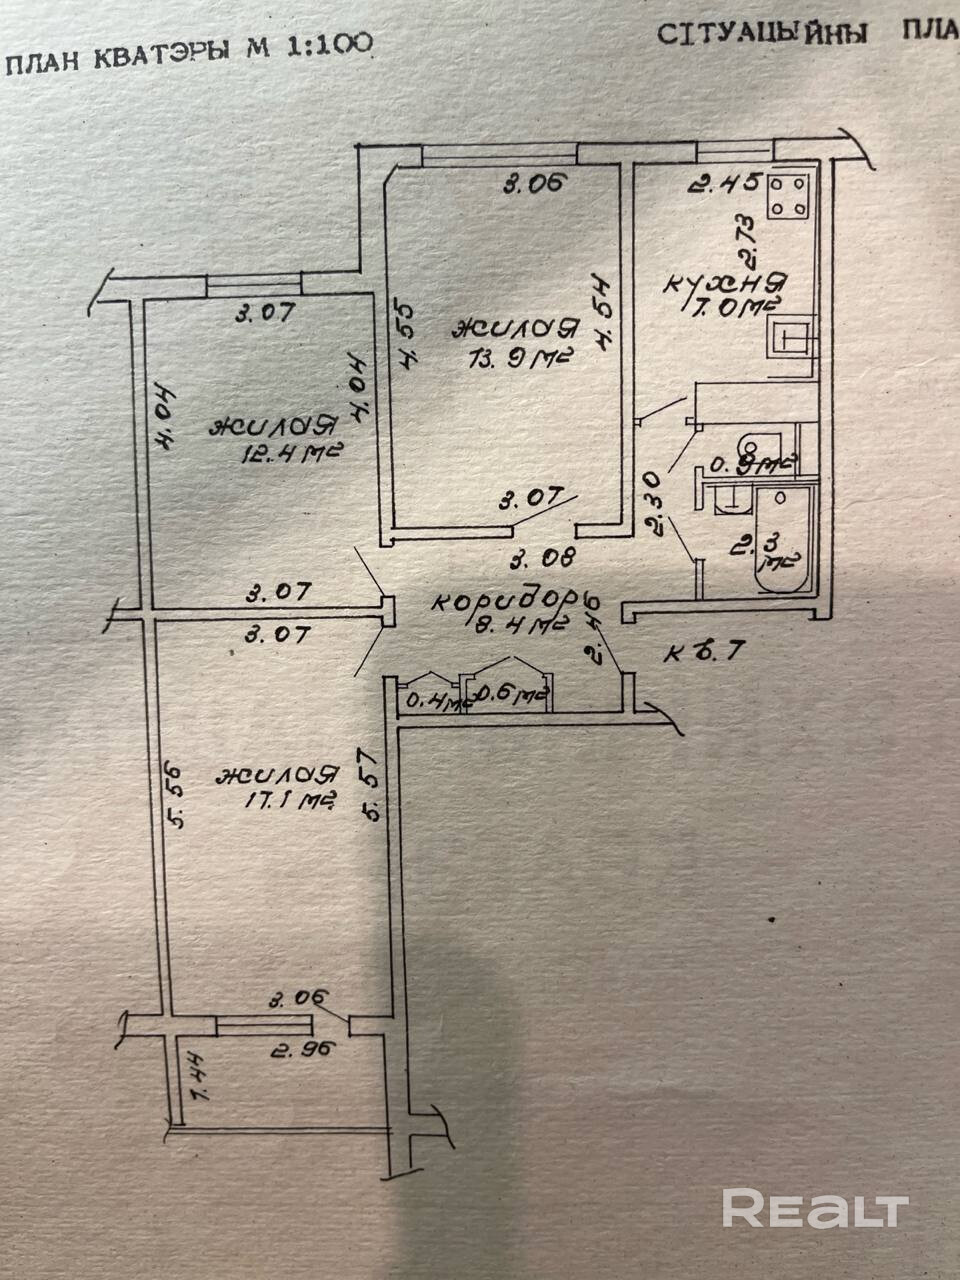 ПЛАН КВАТЭРЫ М 1:100
СІТУАЦЫЙНЫ ПЛА
3.06
2.45
2.73
кухня
7.0 м2
3.07
4.55
4.54
жилая
13.9 м2
4.04
4.04
жилая
12.4 м2
0.9 м2
3.07
2.30
3.08
2.3
м2
3.07
коридоръ
8.4 м2
2.46
3.07
кв.7
0.4 м2
0.6 м2
5.56
5.57
жилая
17.1 м2
3.06
2.96
1.44
Realt